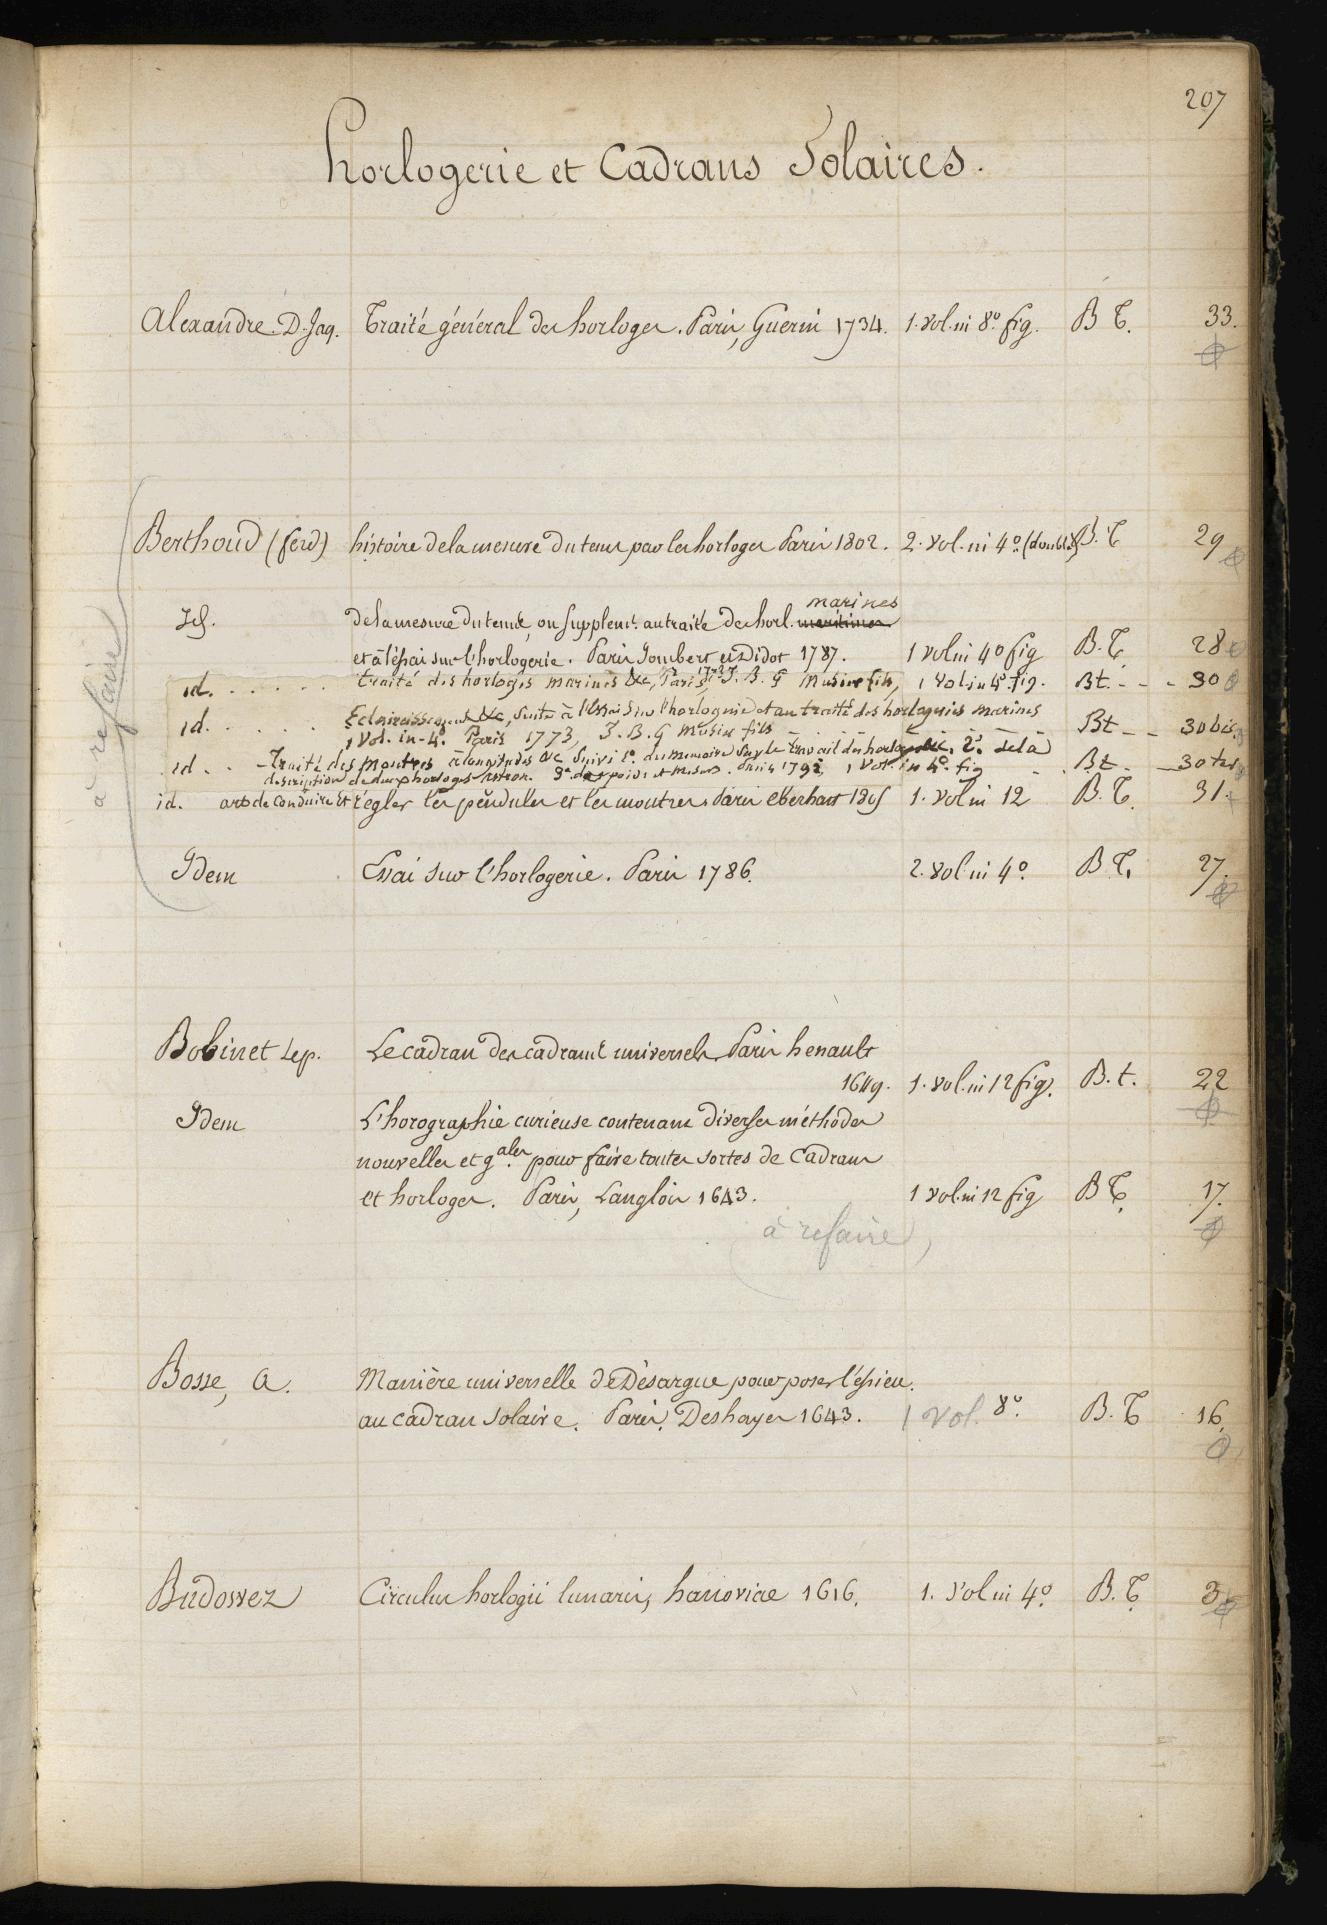 207
horlogerie et Cadrans Solaires.
Alexandre. D. Jaq. Traité général des horloges. Paris, Guerin 1734. 1. vol. in 8º. fig. B T. 33.
Berthoud (ferd) histoire de la mesure du tems par les horloges Paris 1802. 2. vol. in 4º. (double) B. T 29
marines
Id. de la mesure du tems, ou supplemt. au traité des horl. maritimes
et à l'essai sur l'horlogerie. Paris Jombert et Didot 1787. 1 vol in 4º fig B. T. 28
id. . . . . . . traité des horloges marines &c, Paris, J. B. G Musier fils, 1 vol in 4º. fig. Bt. - - - 30
id. . . . . . Eclaircissement &c, suite à l'essai sur l'horlogerie et au traité des horlogeries marines
1 vol. in-4º. Paris 1773, J. B. G Musier fils Bt - - 30 bis
id. . . - traité des montres à longitudes &c suivi 1º. du memoire sur le travail des horloges &c. 2º. de la
description de deux horloges astron. 3º. des poids et mesures. Paris 1792, 1 vol. in 4º. fig - . Bt - 30 ter
id. art de conduire et régler les pendules et les montres. Paris eberhart 1. vol in 12 B. T. 31.
Idem Essai sur l'horlogerie. Paris 1786. 2. vol in 4º. B T. 27.
à refaire
Bobinet Lep. Le cadran des cadrans universels. Paris henault
1649. 1. vol. in 12 fig. B. t. 22
Idem L'horographie curieuse contenant diverses méthodes
nouvelles et gales. pour faire toutes sortes de Cadrans
et horloges. Paris, Langlois 1643. 1 vol. in 12 fig B T. 17.
à refaire
Bosse, A. Manière universelle de Désargue pour poser l'éssieu.
au cadran solaire. Paris. Deshayes 1643. 1 vol. 8º. B. T 16
Budowez Circulus horlogii lunaris, hanoviae 1616. 1. vol in 4º. B. T. 3